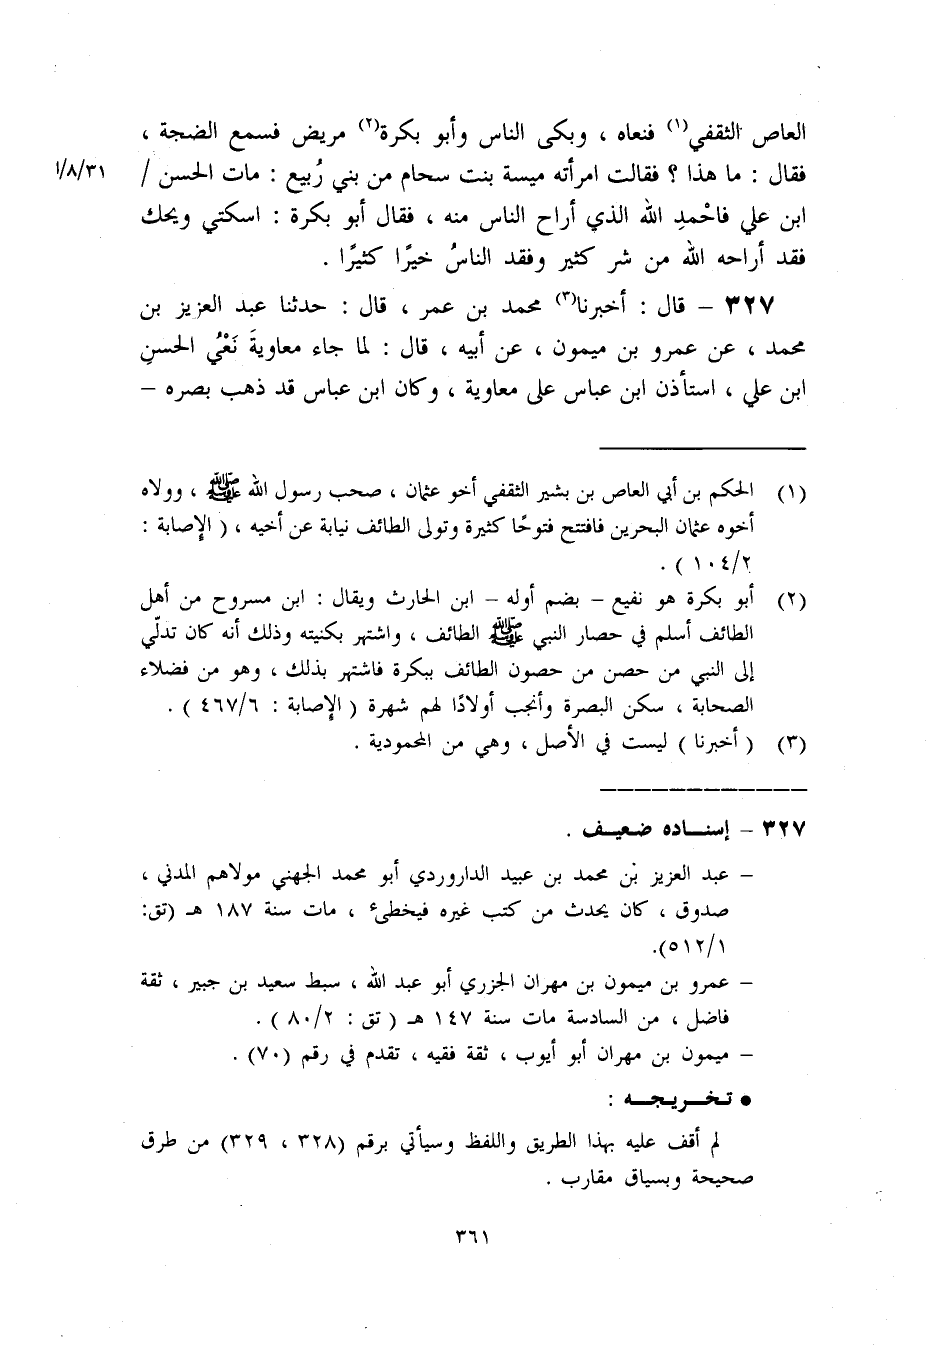 العاص الثقفي(١) فنعاه ، وبكى الناس وأبو بكرة(٢) مريض فسمع الضجة ،
فقال : ما هذا ؟ فقالت امرأته ميسة بنت سحام من بني رُبيع : مات الحسن / ١/٨/٣١
ابن علي فاحْمدِ الله الذي أراح الناس منه ، فقال أبو بكرة : اسكتي ويحك
فقد أراحه الله من شر كثير وفقد الناسُ خيرًا كثيرًا .
٣٢٧ – قال : أخبرنا(٣) محمد بن عمر ، قال : حدثنا عبد العزيز بن
محمد ، عن عمرو بن ميمون ، عن أبيه ، قال : لما جاء معاويةَ نَعْيُ الحسنِ
ابن علي ، استأذن ابن عباس على معاوية ، وكان ابن عباس قد ذهب بصره –
(١) الحكم بن أبي العاص بن بشير الثقفي أخو عثمان ، صحب رسول الله ﷺ ، وولاه
أخوه عثمان البحرين فافتتح فتوحًا كثيرة وتولى الطائف نيابة عن أخيه ، ( الإصابة :
١٠٤/٢ ) .
(٢) أبو بكرة هو نفيع – بضم أوله – ابن الحارث ويقال : ابن مسروح من أهل
الطائف أسلم في حصار النبي ﷺ الطائف ، واشتهر بكنيته وذلك أنه كان تدلّي
إلى النبي من حصن من حصون الطائف ببكرة فاشتهر بذلك ، وهو من فضلاء
الصحابة ، سكن البصرة وأنجب أولادًا لهم شهرة ( الإصابة : ٤٦٧/٦ ) .
(٣) ( أخبرنا ) ليست في الأصل ، وهي من المحمودية .
٣٢٧ – إسناده ضعيف .
– عبد العزيز بن محمد بن عبيد الداروردي أبو محمد الجهني مولاهم المدني ،
صدوق ، كان يحدث من كتب غيره فيخطىء ، مات سنة ١٨٧ هـ (تق:
٥١٢/١).
– عمرو بن ميمون بن مهران الجزري أبو عبد الله ، سبط سعيد بن جبير ، ثقة
فاضل ، من السادسة مات سنة ١٤٧ هـ ( تق : ٨٠/٢ ) .
– ميمون بن مهران أبو أيوب ، ثقة فقيه ، تقدم في رقم (٧٠) .
● تخريجه :
لم أقف عليه بهذا الطريق واللفظ وسيأتي برقم (٣٢٨ ، ٣٢٩) من طرق
صحيحة وبسياق مقارب .
٣٦١